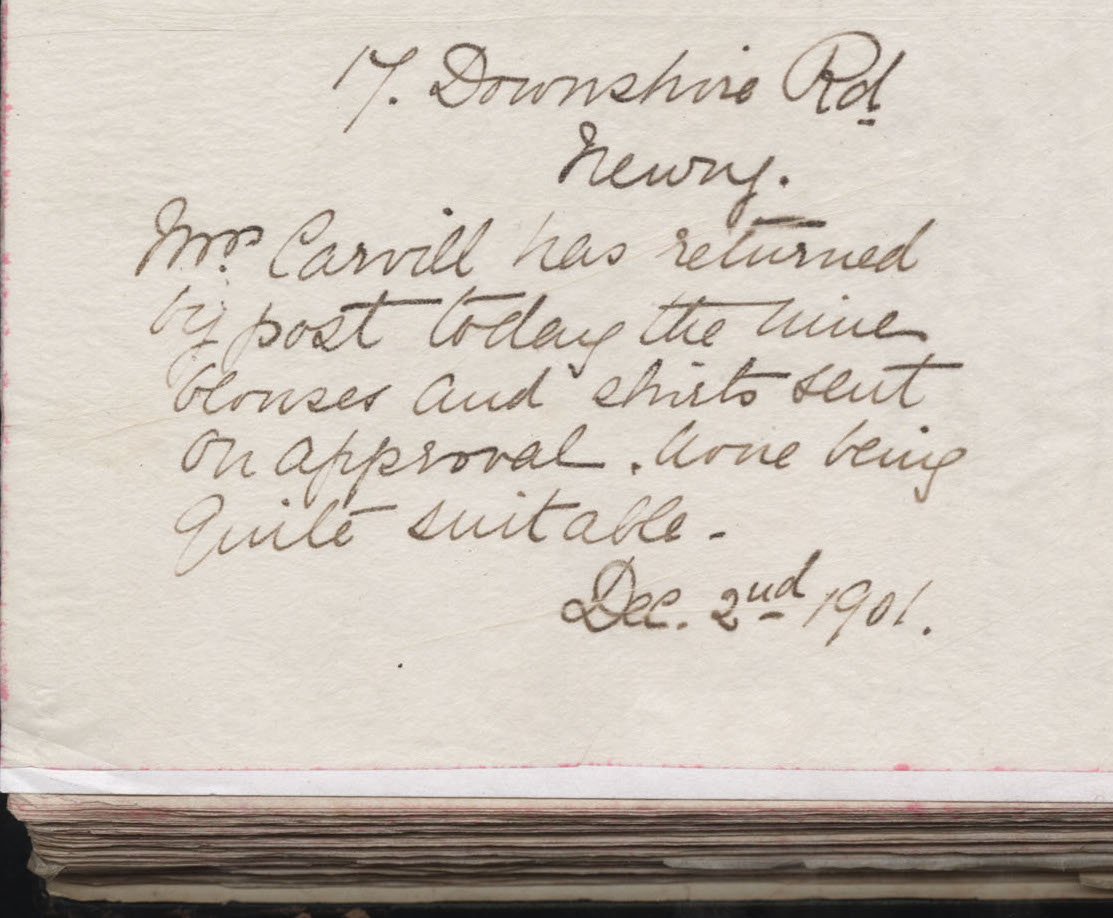 17. Downshire Rd
Newry.
Mrs Carvill has returned
by post today the nine
blouses and shirts sent
on approval. None being
quite suitable -
Dec. 2nd 1901.